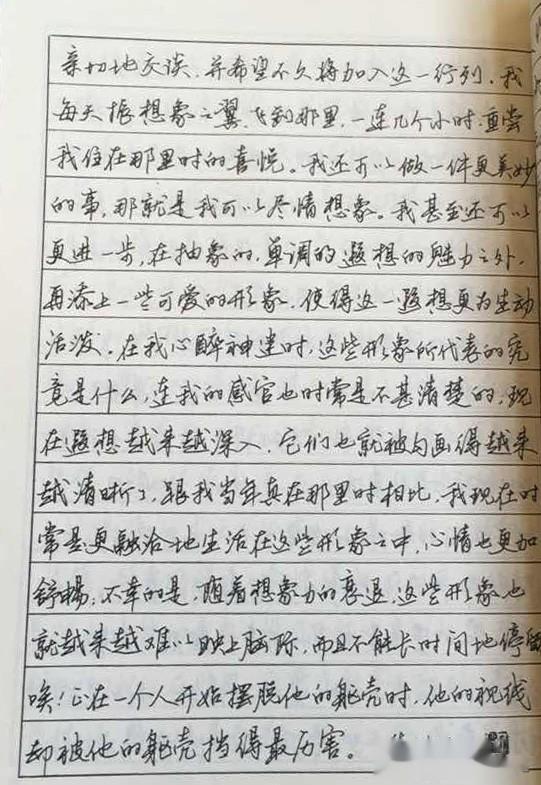 亲切地交谈，并希望不久将加入这一行列，我
每天振想象之翼，飞到那里，一连几个小时重尝
我住在那里时的喜悦。我还可以做一件更美妙
的事，那就是我可以尽情想象。我甚至还可以
更进一步，在抽象的，单调的遐想的魅力之外，
再添上一些可爱的形象，使得这一遐想更为生动
活泼。在我心醉神迷时，这些形象所代表的究
竟是什么，连我的感官也时常是不甚清楚的，现
在遐想越来越深入，它们也就被勾画得越来
越清晰了，跟我当年真在那里时相比，我现在时
常是更融洽地生活在这些形象之中，心情也更加
舒畅；不幸的是，随着想象力的衰退，这些形象也
就越来越难以映上脑际，而且不能长时间地停留
唉！正在一个人开始摆脱他的躯壳时，他的视线
却被他的躯壳挡得最厉害。